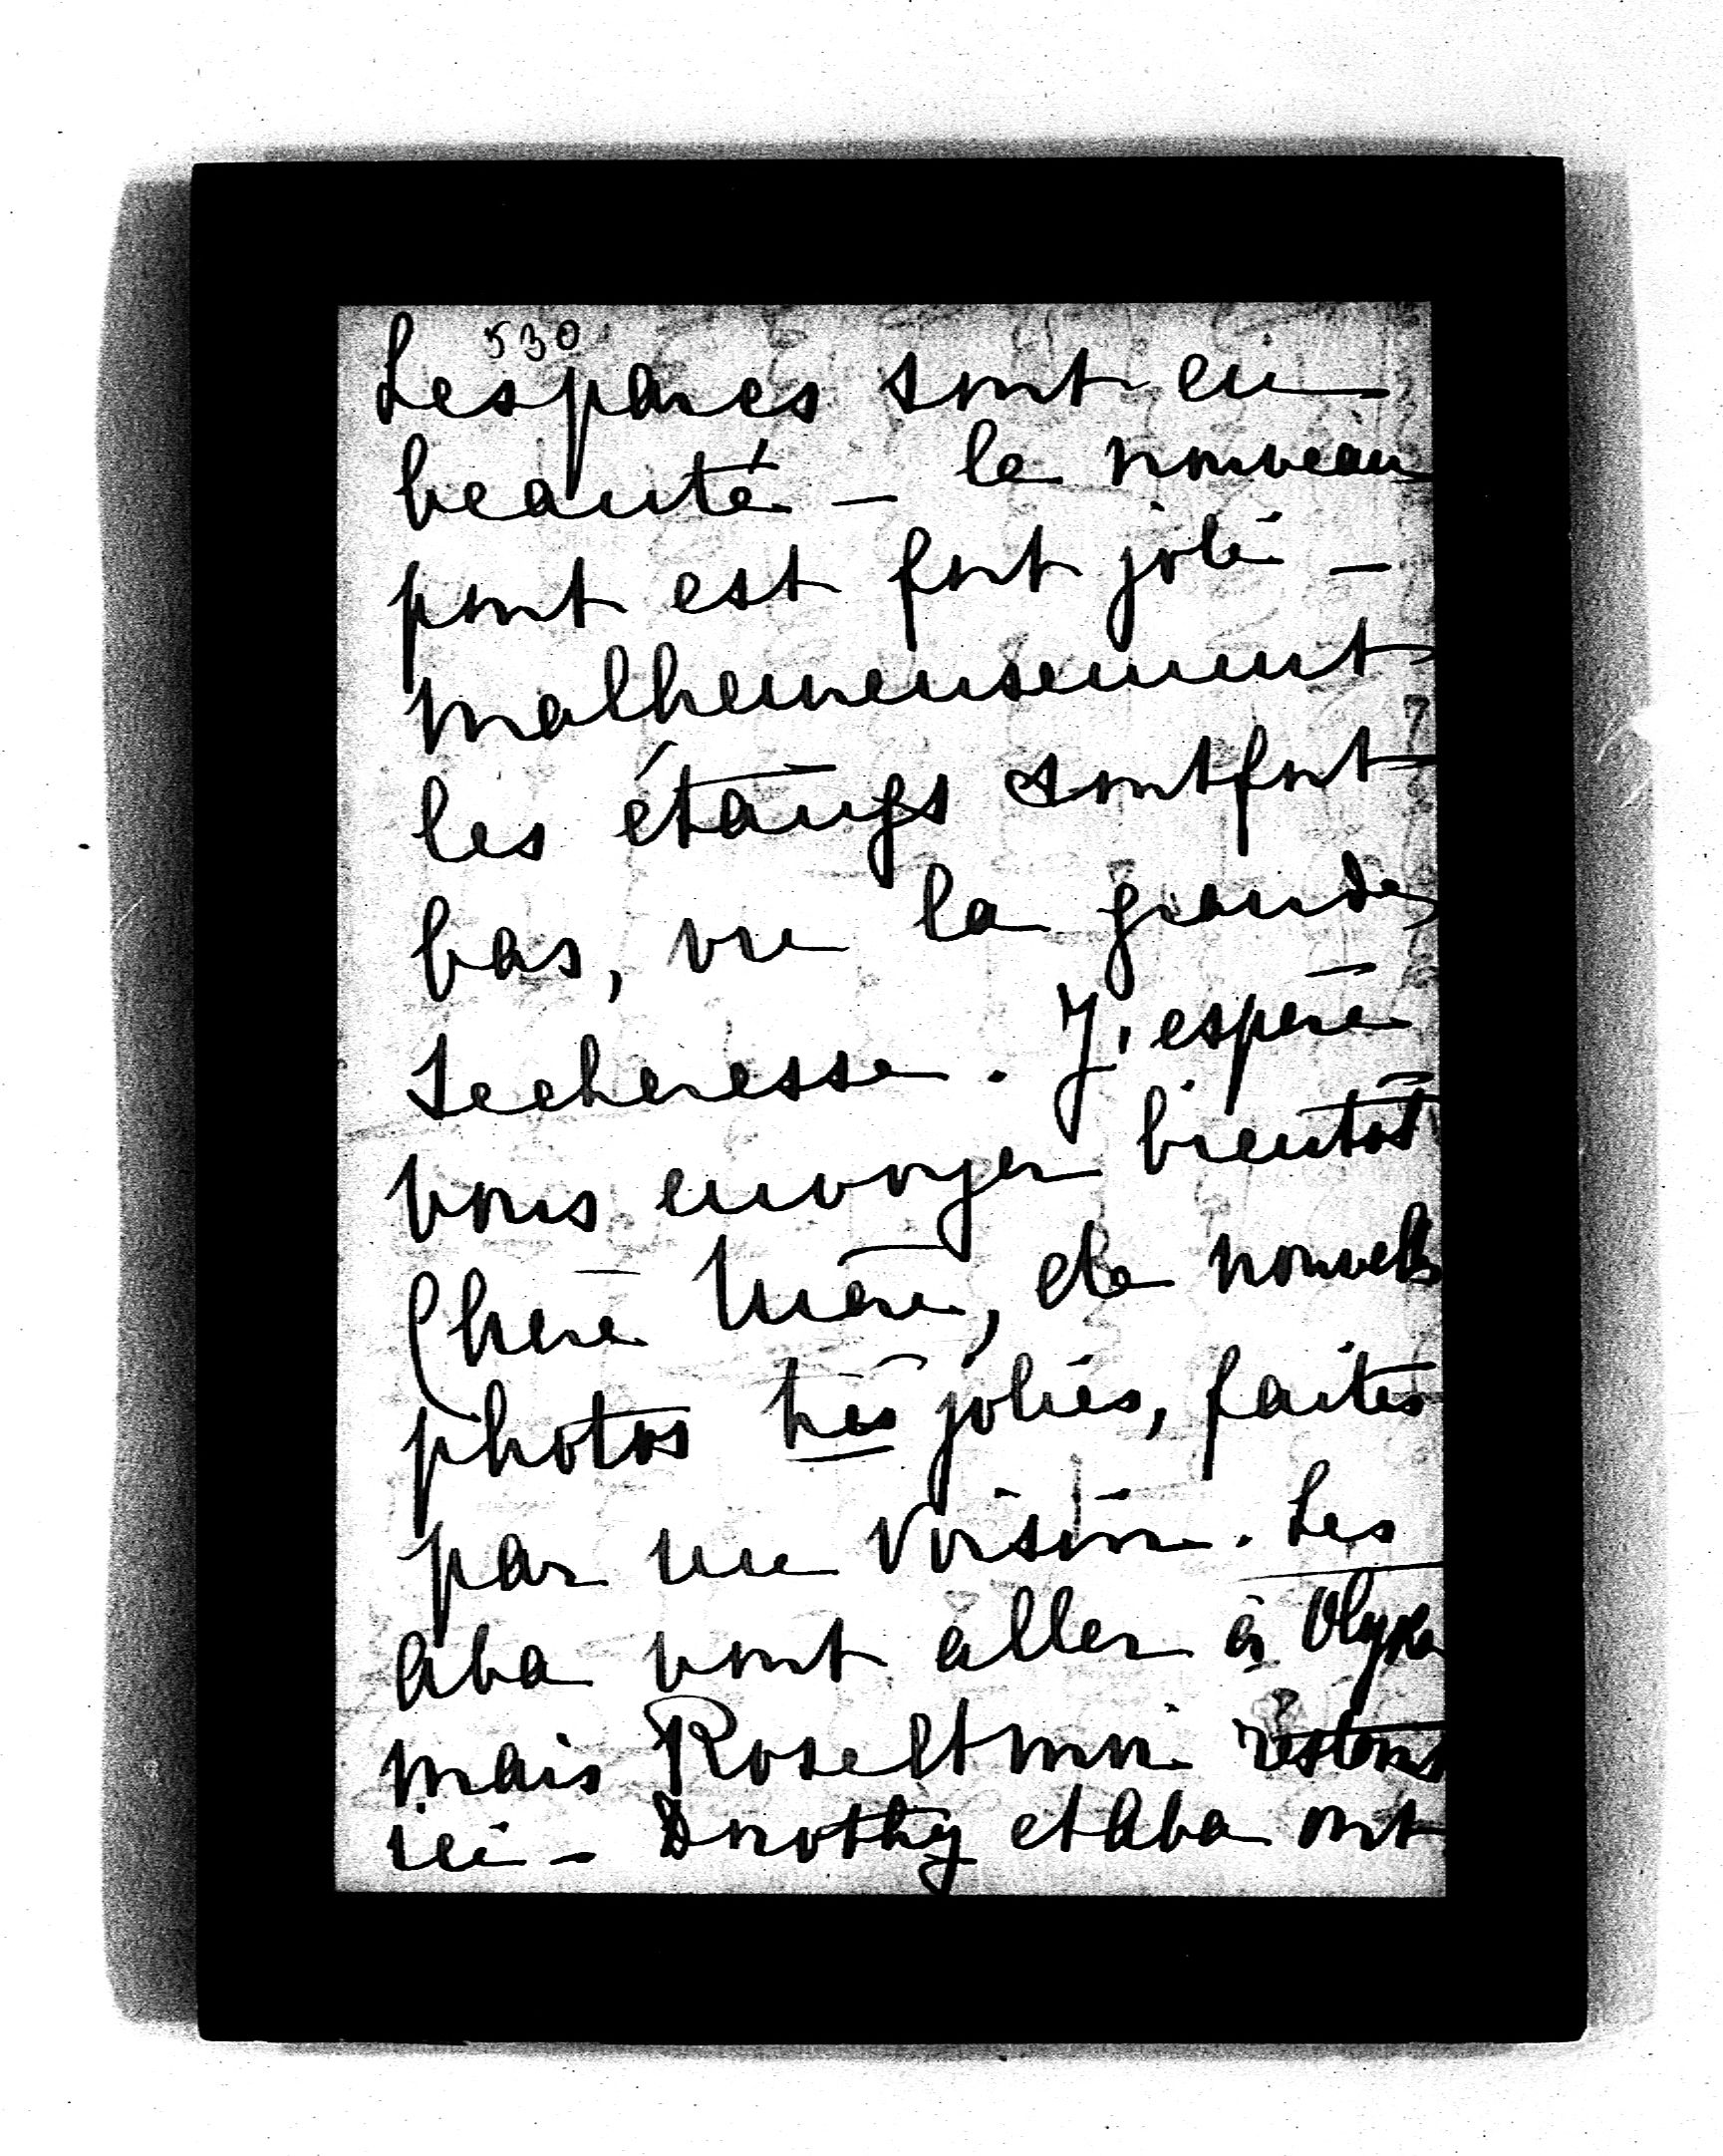 530
Les parcs sont en
beauté — le nouveau
pont est fort joli —
malheureusement
les étangs sont fort
bas, vu la grande
secheresse. J'espère
vous envoyer bientôt
Chère Mère, de nouvelles
photos très jolies, faites
par un voisin. Les
Aba vont aller à Olyka
mais Rose et moi restons
ici — Dorothy et Aba ont